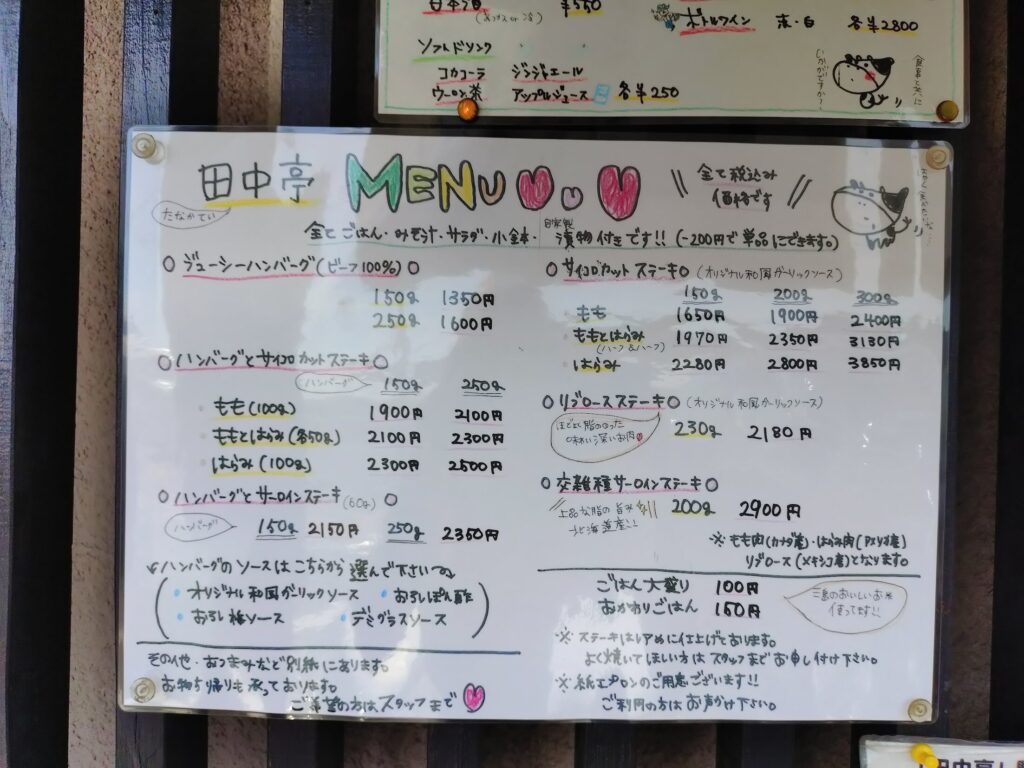 日本酒 ¥550
ボトルワイン 赤・白 各¥2800
ソフトドリンク
コカコーラ ジンジャエール
ウーロン茶 アップルジュース 各¥250
食事と共に
いかがですか?
田中亭 MENU
たなかてい
全て税込み
価格です
全てごはん・みそ汁・サラダ・小鉢・自家製漬物付きです!!(-200円で単品にできます。)
ジューシーハンバーグ(ビーフ100%)
150g 1350円
250g 1600円
ハンバーグとサイコロカットステーキ
ハンバーグ 150g 250g
もも(100g) 1900円 2100円
ももとはらみ(各50g) 2100円 2300円
はらみ(100g) 2300円 2500円
ハンバーグとサーロインステーキ(60g)
ハンバーグ 150g 2150円 250g 2350円
ハンバーグのソースはこちらから選んで下さい
・オリジナル和風ガーリックソース ・おろしぽん酢
・おろし梅ソース ・デミグラスソース
その他・おつまみなど別紙にあります。
お持ち帰りも承っております。
ご希望の方はスタッフまで
サイコロカットステーキ(オリジナル和風ガーリックソース)
150g 200g 300g
もも 1650円 1900円 2400円
ももとはらみ 1970円 2350円 3130円
(ハーフ&ハーフ)
はらみ 2280円 2800円 3850円
リブロースステーキ(オリジナル和風ガーリックソース)
ほどよく脂ののった
味わい深いお肉
230g 2180円
交雑種サーロインステーキ
上品な脂の旨み
北海道産!!
200g 2900円
※もも肉(カナダ産)・はらみ肉(アメリカ産)
リブロース(メキシコ産)となります。
ごはん大盛り 100円
おかわりごはん 150円
三島のおいしいお米
使ってます!!
※ステーキはレアめに仕上げております。
よく焼いてほしい方はスタッフまでお申し付け下さい。
※紙エプロンのご用意ございます!!
ご利用の方はお声がけ下さい。